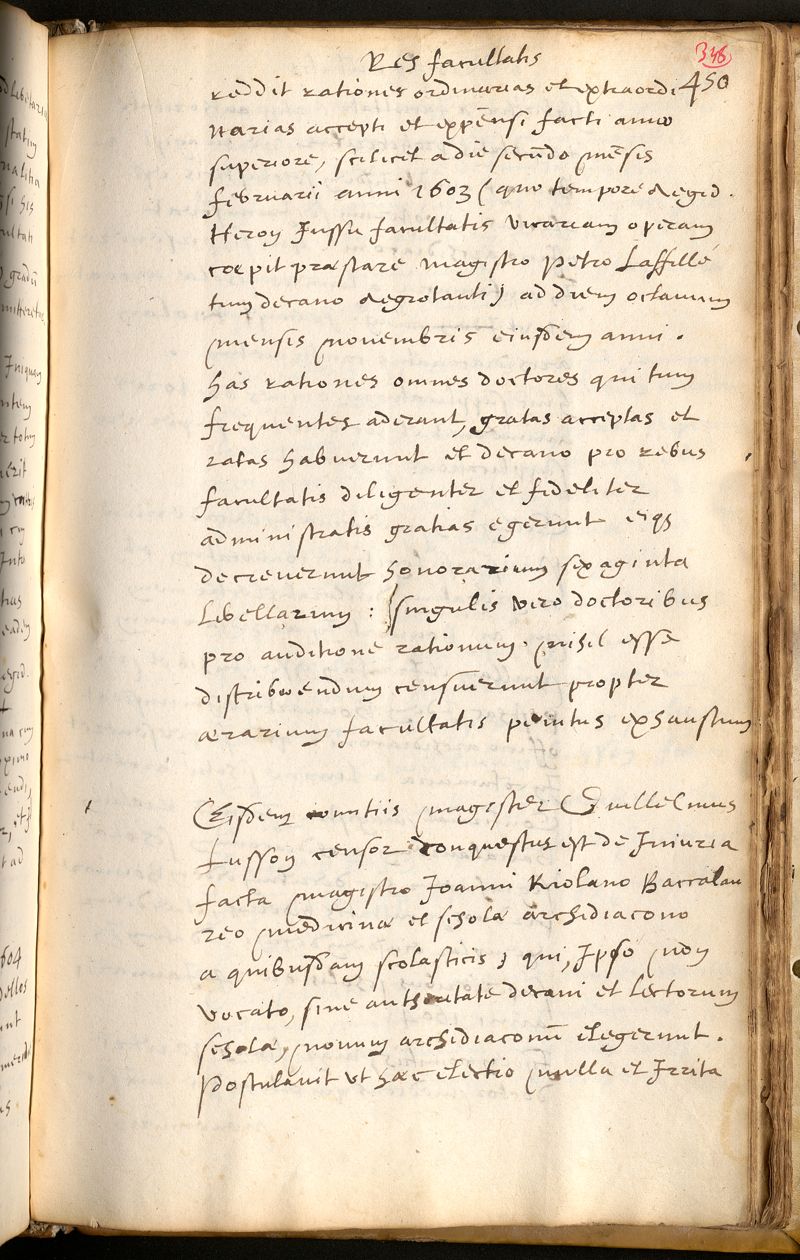 346
Res facultatis
450
reddit rationes ordinarias et extraordi
narias accepti et expensi facti anno
superiore, scilicet a die secūdo mēsis
februarii anni 1603 (quo tempore Aegid.
Heron Jussu facultatis vicariam operam
coepit præstare magistro Petro Laffillé
tum decano Aegrotanti) ad diem octavum
mensis novembris eiusdem anni.
has rationes omnes doctores qui tum
frequentes aderant, gratas acceptas et
ratas habuerunt et decano pro rebus
facultatis diligenter et fideliter
administratis gratias egerunt eiq;
decreverunt honorarium sexaginta
Libellarum : singulis vero doctoribus
pro auditione rationum nihil esse
distribuendum censuerunt propter
ærarium facultatis penitus exhaustum
Eisdem comitiis magister Guillelmus
Lusson censor conquestus est de Iniuria
facta magistro Joanni Riolano Baccalau
reo medicinæ et scholæ archidiacono
a quibusdam scolasticis, qui, Ipso non
vocato, sine authoritate decani et lectorum
scholæ, novum archidiaconū elegerunt.
Postulavit ut hæc electio nulla et Irrita